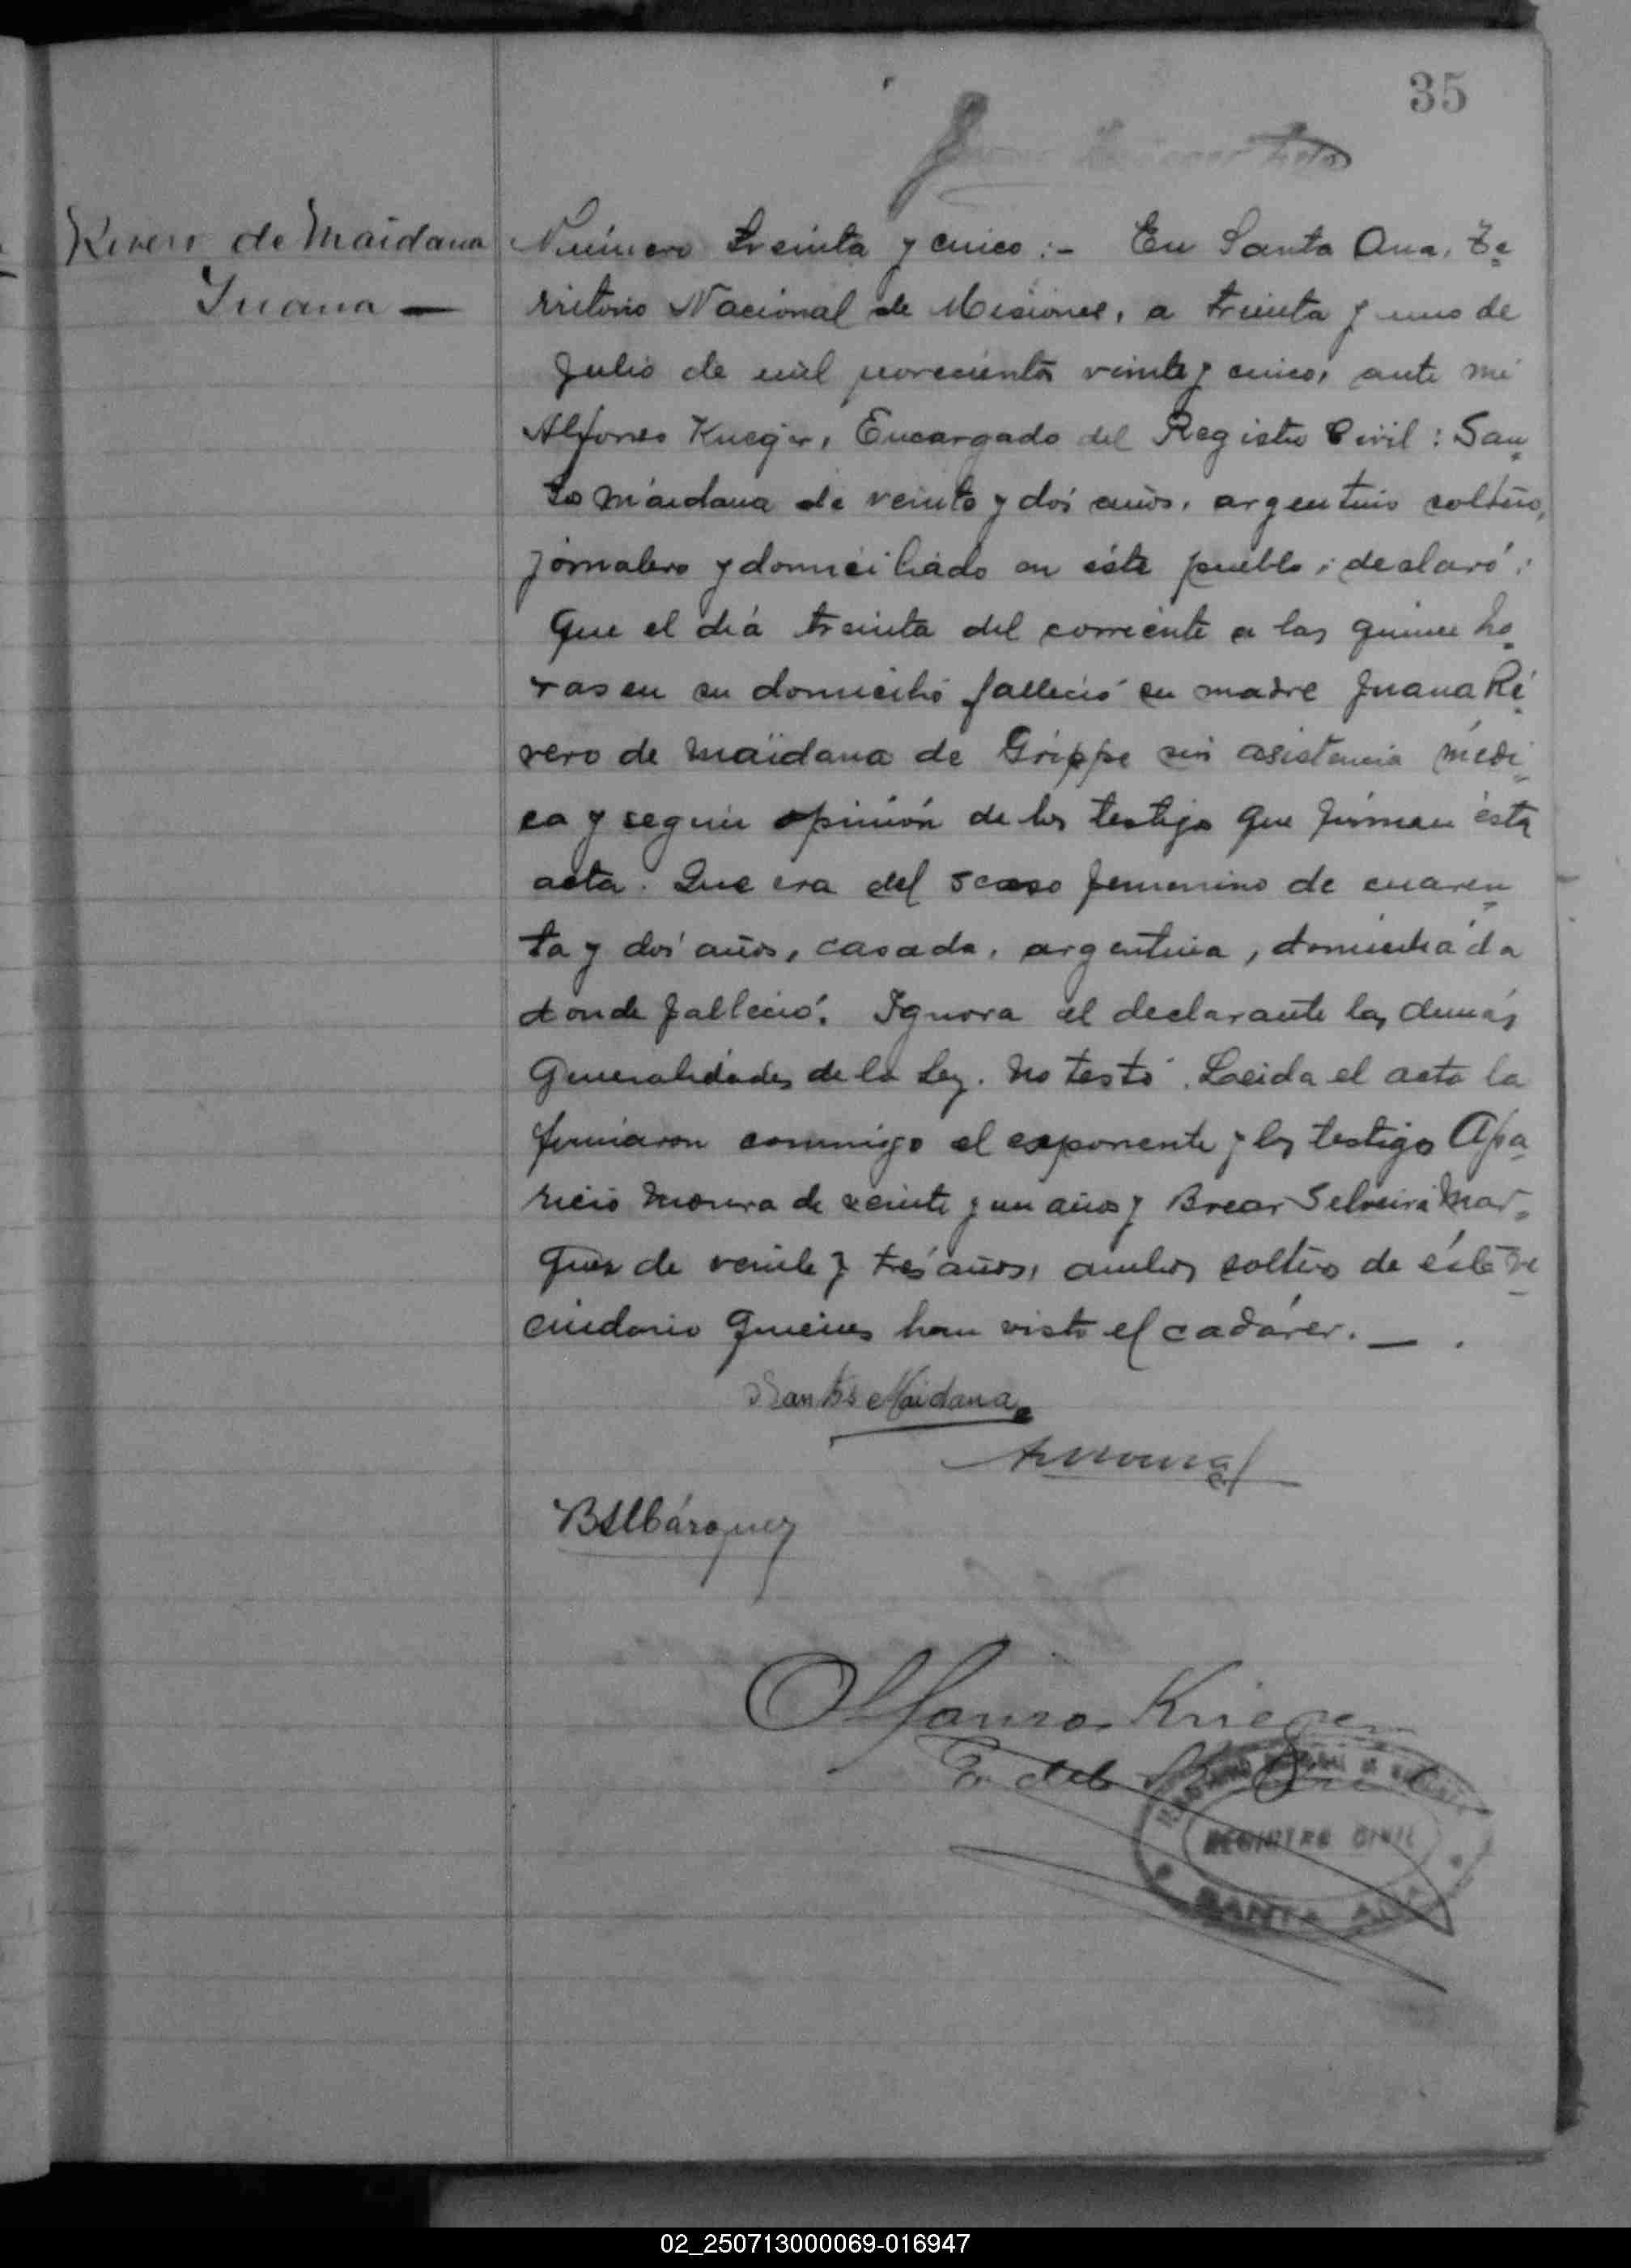 35
Rivero de Maidana
Juana —
Número treinta y cinco :- En Santa Ana, Te-
rritorio Nacional de Misiones, a treinta y uno de
Julio de mil novecientos veinte y cinco, ante mi
Alfonso Krieger, Encargado del Registro Civil : San-
to Maidana de veinte y dos años, argentino soltero,
jornalero y domiciliado en éste pueblo ; declaró :
Que el día treinta del corriente a las quince ho-
ras en su domicilio falleció su madre Juana Ri-
vero de Maidana de Grippe sin asistencia médi-
ca y según opinión de los testigos que firman ésta
acta. Que era del sexso femenino de cuaren-
ta y dos años, casada, argentina, domiciliada
donde falleció. Ignora el declarante las demás
Generalidades de la Ley. No testó. Leida el acta la
firmaron conmigo el exponente y los testigos Apa-
ricio Moura de veinte y un años y Brear Selveira Mar-
quez de veinte y tres años, ambos solteros de éste ve-
cindario quienes han visto el cadáver. — .
Santos Maidana
AMoura
BSMárquez
Alfonso Krieger
E. del R. Civil
REGISTRO CIVIL
SANTA ANA
02_250713000069-016947